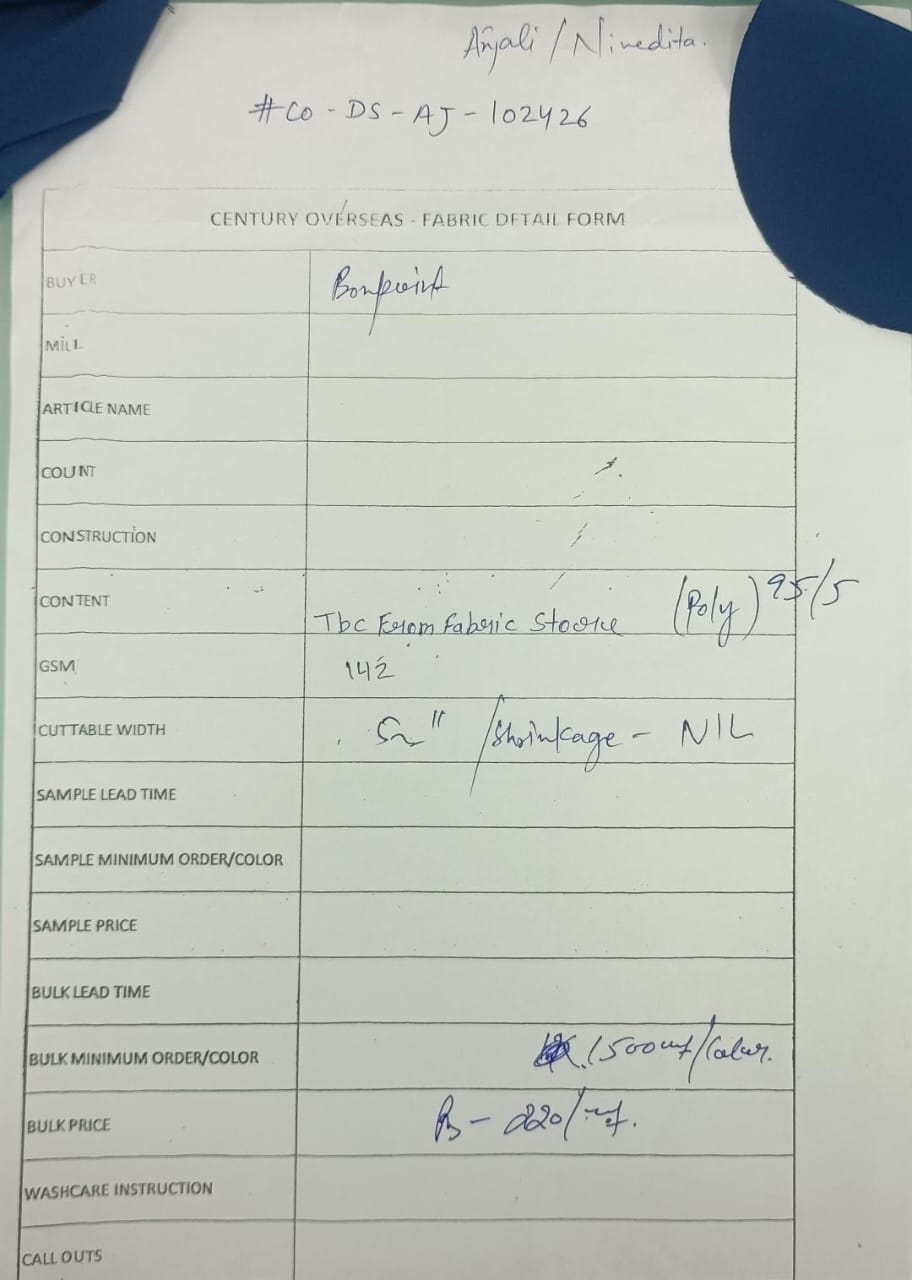 Anjali / Nivedita.
#CO - DS - AJ - 102426
CENTURY OVERSEAS - FABRIC DETAIL FORM
BUYER Bonpoint
MILL
ARTICLE NAME
COUNT
CONSTRUCTION
CONTENT Tbc From Fabric Store (Poly) 95/5
GSM 142
CUTTABLE WIDTH 52" /Shrinkage - NIL
SAMPLE LEAD TIME
SAMPLE MINIMUM ORDER/COLOR
SAMPLE PRICE
BULK LEAD TIME
BULK MINIMUM ORDER/COLOR 1500 /Color.
BULK PRICE 220/
WASHCARE INSTRUCTION
CALL OUTS